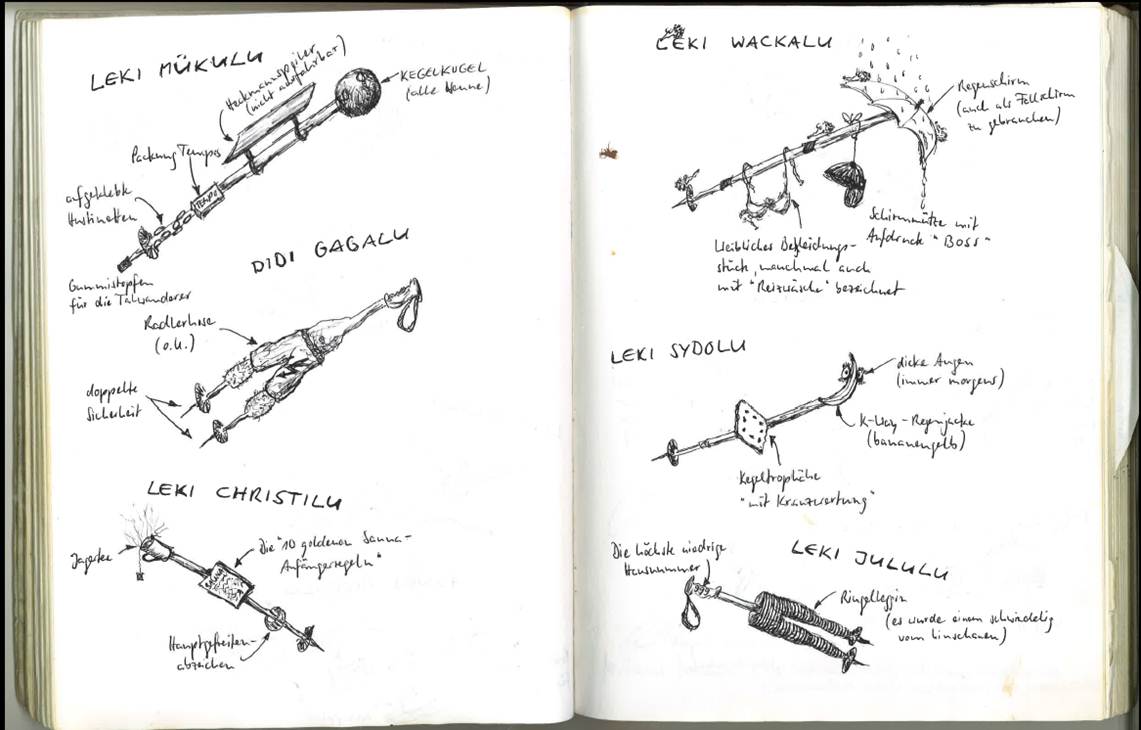 LEKI MÜKULU
Heckmannspoiler
(nicht ausfahrbar)
KEGELKUGEL
(alle Neune)
Packung Tempos
TEMPO
aufgeklebte
Hustinetten
Gummistopfen
für die Talwanderer
DIDI GAGALU
Radlerhose
(o.U.)
doppelte
Sicherheit
LEKI CHRISTILU
Jagertee
Die "10 goldenen Sauna-
Anfängerregeln"
SAUNA
Hauptgefreiten-
abzeichen
LEKI WACKALU
Regenschirm
(auch als Fallschirm
zu gebrauchen)
Schirmmütze mit
Aufdruck "BOSS"
Weibliches Bekleidungs-
stück, manchmal auch
mit "Reizwäsche" bezeichnet
LEKI SYDOLU
dicke Augen
(immer morgens)
K-Way-Regenjacke
(bananengelb)
Kegeltrophäe
"mit Kranzwertung"
LEKI JULULU
Die höchste niedrige
Hausnummer
Ringelleggin
(es wurde einem schwindelig
vom hinschauen)